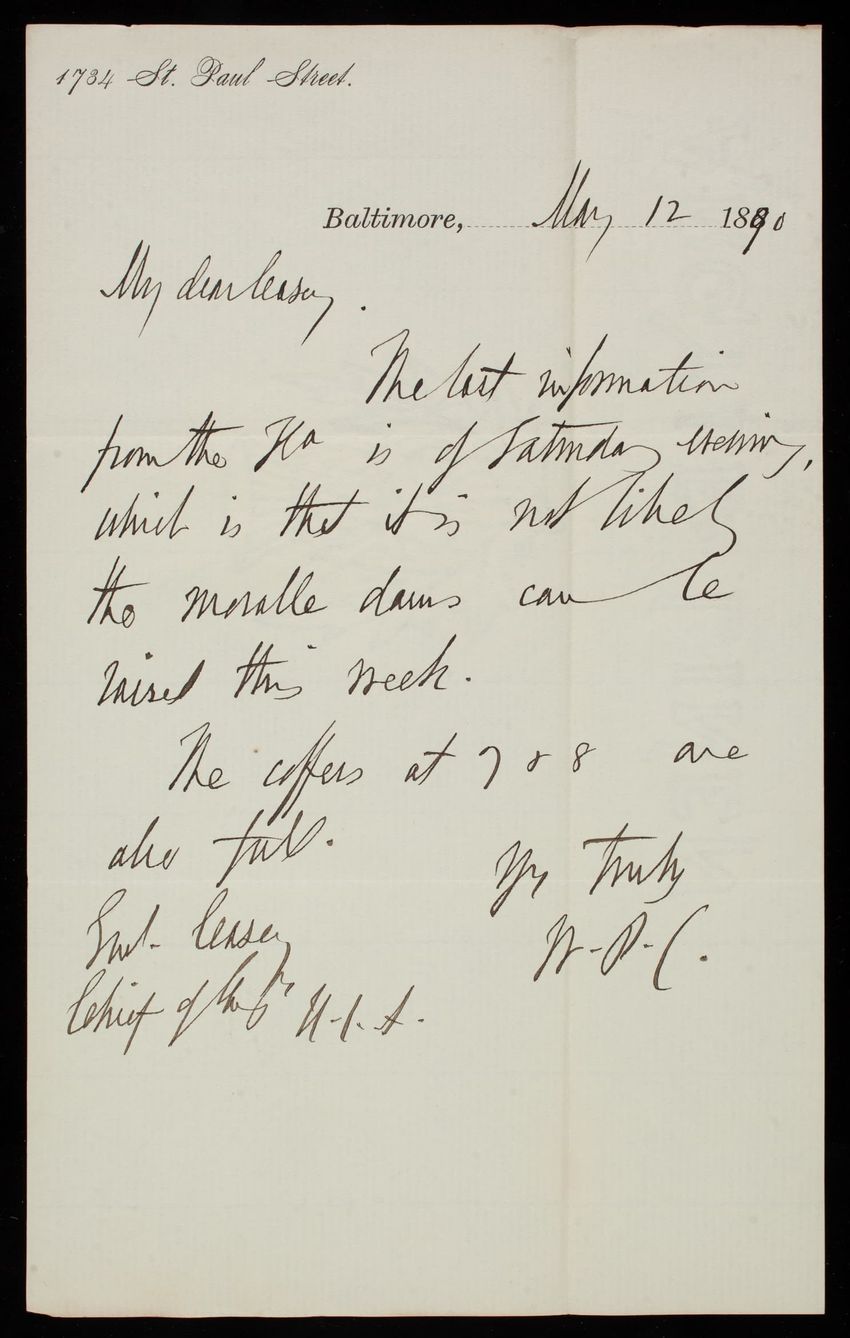 1734 St. Paul Street.
Baltimore, May 12 1890
My dear Casey.
The last information
from the Ka is of Saturday evening,
which is that it is not likely
the movable dams can be
raised this week.
The coffers at 7 & 8 are
also full.
Yrs truly
W. P. C.
Genl. Casey
Chief of Engrs U.S.A.